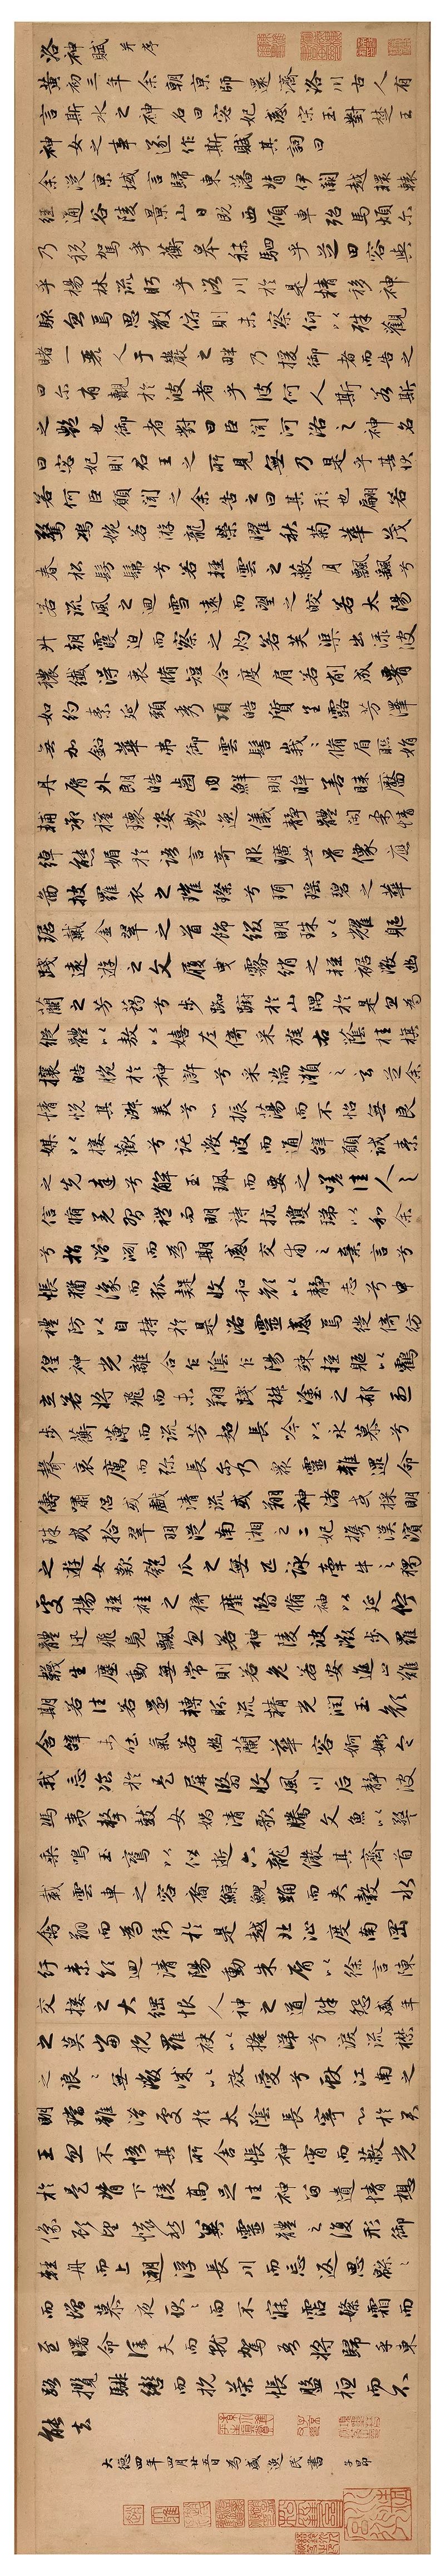 洛神賦 并序
黄初三年余朝京師還濟洛川古人有
言斯水之神名曰宓妃感宋玉對楚王
神女之事遂作斯賦其詞曰
余從京域言歸東藩背伊闕越轘轅
經通谷陵景山日既西傾車殆馬煩尔
乃税駕乎蘅皋秣駟乎芝田容與
乎楊林流眄乎洛川於是精移神
駭忽焉思散俯則未察仰以殊觀
睹一麗人于巖之畔乃援御者而告之
曰尔有覿於彼者乎彼何人斯若斯
之艶也御者對曰臣聞河洛之神名
曰宓妃則君王之所見無乃是乎其狀
若何臣願聞之余告之曰其形也翩若
驚鴻婉若游龍榮曜秋菊華茂
春松髣髴兮若輕雲之蔽月飄飄兮
若流風之迴雪遠而望之皎若太陽
升朝霞迫而察之灼若芙渠出渌波
穠纖得衷脩短合度肩若削成署
如約素延頸秀項皓質呈露芳澤
無加鉛華弗御雲髻峩〻脩眉聮娟
丹脣外朗皓齒内鮮明眸善睞靨
輔承權瓌姿艶逸儀静體閑柔情
綽態媚於語言奇服曠世骨像應
圖披羅衣之璀璨兮珥瑶碧之華
琚戴金翠之首飾綴明珠以耀軀
踐遠遊之文履曳霧綃之輕裾微幽
蘭之芳藹兮步踟蹰於山隅於是忽焉
縱體以敖以嬉左倚采旄右蔭桂旗
攘皓腕於神滸兮采湍瀬之玄芝余
情悦其淑美兮心振蕩而不怡無良
媒以接歡兮託微波而通辭願誠素
之先達兮解玉珮而要之嗟佳人之
信脩羌習禮而明詩抗瓊珶以和余
兮指潛淵而為期感交甫之棄言兮
悵猶豫而狐疑收和顔以静志兮申
禮防以自持於是洛靈感焉徙倚彷
徨神光離合乍陰乍陽竦輕軀以鶴
立若將飛而未翔踐椒塗之郁烈
步蘅薄而流芳超長吟以永慕兮
聲哀厲而弥長尓乃衆靈雜遝命
儔嘯侣或戲清流或翔神渚或採明
珠或拾翠羽從南湘之二妃携漢濱
之游女歎匏瓜之無匹詠牽牛之獨
處揚輕袿之猗靡翳脩袖以延佇
體迅飛鳬飄忽若神陵波微步羅
襪生塵動無常則若危若安進止難
期若往若還轉眄流精光潤玉顔
含辭未吐氣若幽蘭華容婀娜令
我忘飡於是屏翳收風川后静波
馮夷擊鼓女媧清歌騰文魚以警
乗鳴玉鸞以偕逝六龍儼其齊首
載雲車之容裔鯨鯢踊而夾轂水
禽翔而為衛於是越北沚度南岡
紆素領迴清陽動朱脣以徐言陳
交接之大綱恨人神之道殊怨盛年
之莫當抗羅袂以掩涕兮淚流襟
之浪〻無微情以效愛兮獻江南之
明璫雖潛處於太陰長寄心於君
王忽不悟其所舍悵神宵而蔽光
於是背下陵高足往神留遺情想
像顧望懷愁冀靈體之復形御
輕舟而上遡浮長川而忘返思緜〻
而增慕夜耿〻而不寐霑繁霜而
至曙命僕夫而就駕吾將歸乎東
路攬騑轡而抗策悵盤桓而不
能去
大德四年四月廿五日為盛逸民書 子昂